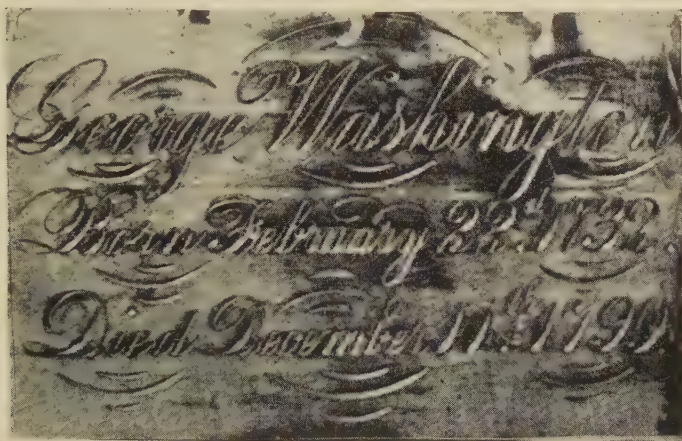 George Washington
Born February 22d. 1732.
Died December 14th. 1799